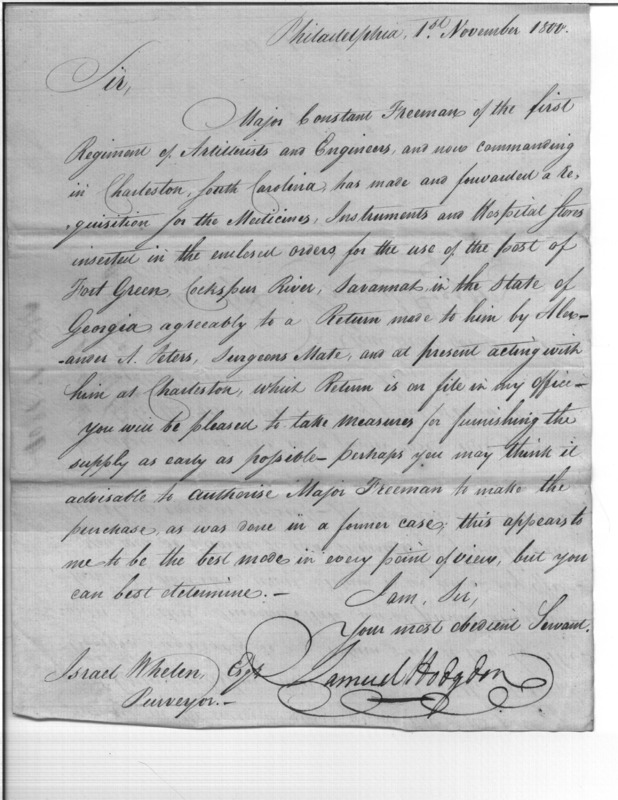 Philadelphia, 1st. November 1800.
Sir,
Major Constant Freeman of the first
Regiment of Artillerists and Engineers, and now commanding
in Charleston, South Carolina, has made and forwarded a re-
-quisition for the Medicines, Instruments and Hospital stores
inserted in the enclosed orders, for the use of the post of
Fort Green, Cockspur River, Savannah, in the State of
Georgia agreeably to a Return made to him by Alex-
-ander A. Peters, Surgeons Mate, and at present acting with
him at Charleston, which Return is on file in my office—
you will be pleased to take measures for furnishing the
supply as early as possible— perhaps you may think it
advisable to authorise Major Freeman to make the
purchase, as was done in a former case; this appears to
me to be the best mode in every point of view, but you
can best determine.—
I am, Sir,
Your most obedient Servant.
Samuel Hodgdon
Israel Whelen, Esqr.
Purveyor.—